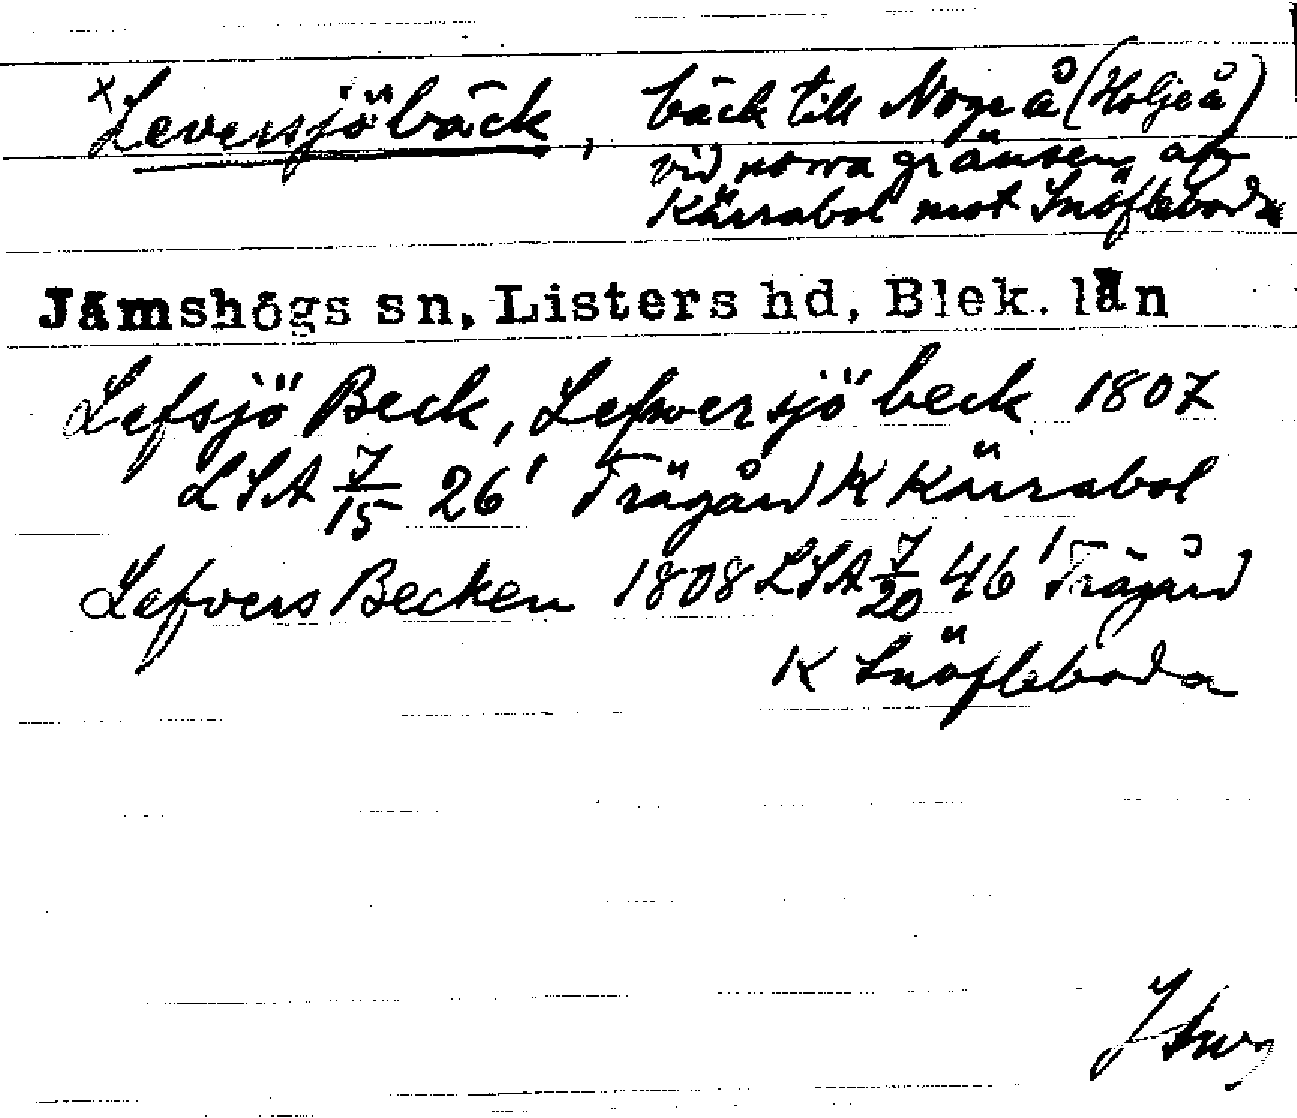 ×Leversjöbäck, bäck till Nogeå (Holjeå)
vid norra gränsen av
Kärrabol mot Snöfleboda
Jämshögs sn, Listers hd, Blek. län
Lefsjö Beck, Lefwersjö beck 1807
LSA 7/15 26' Trägård K Kärrabol
Lefvers Becken 1808 LSA 7/20 46' Trägård
K Snöfleboda